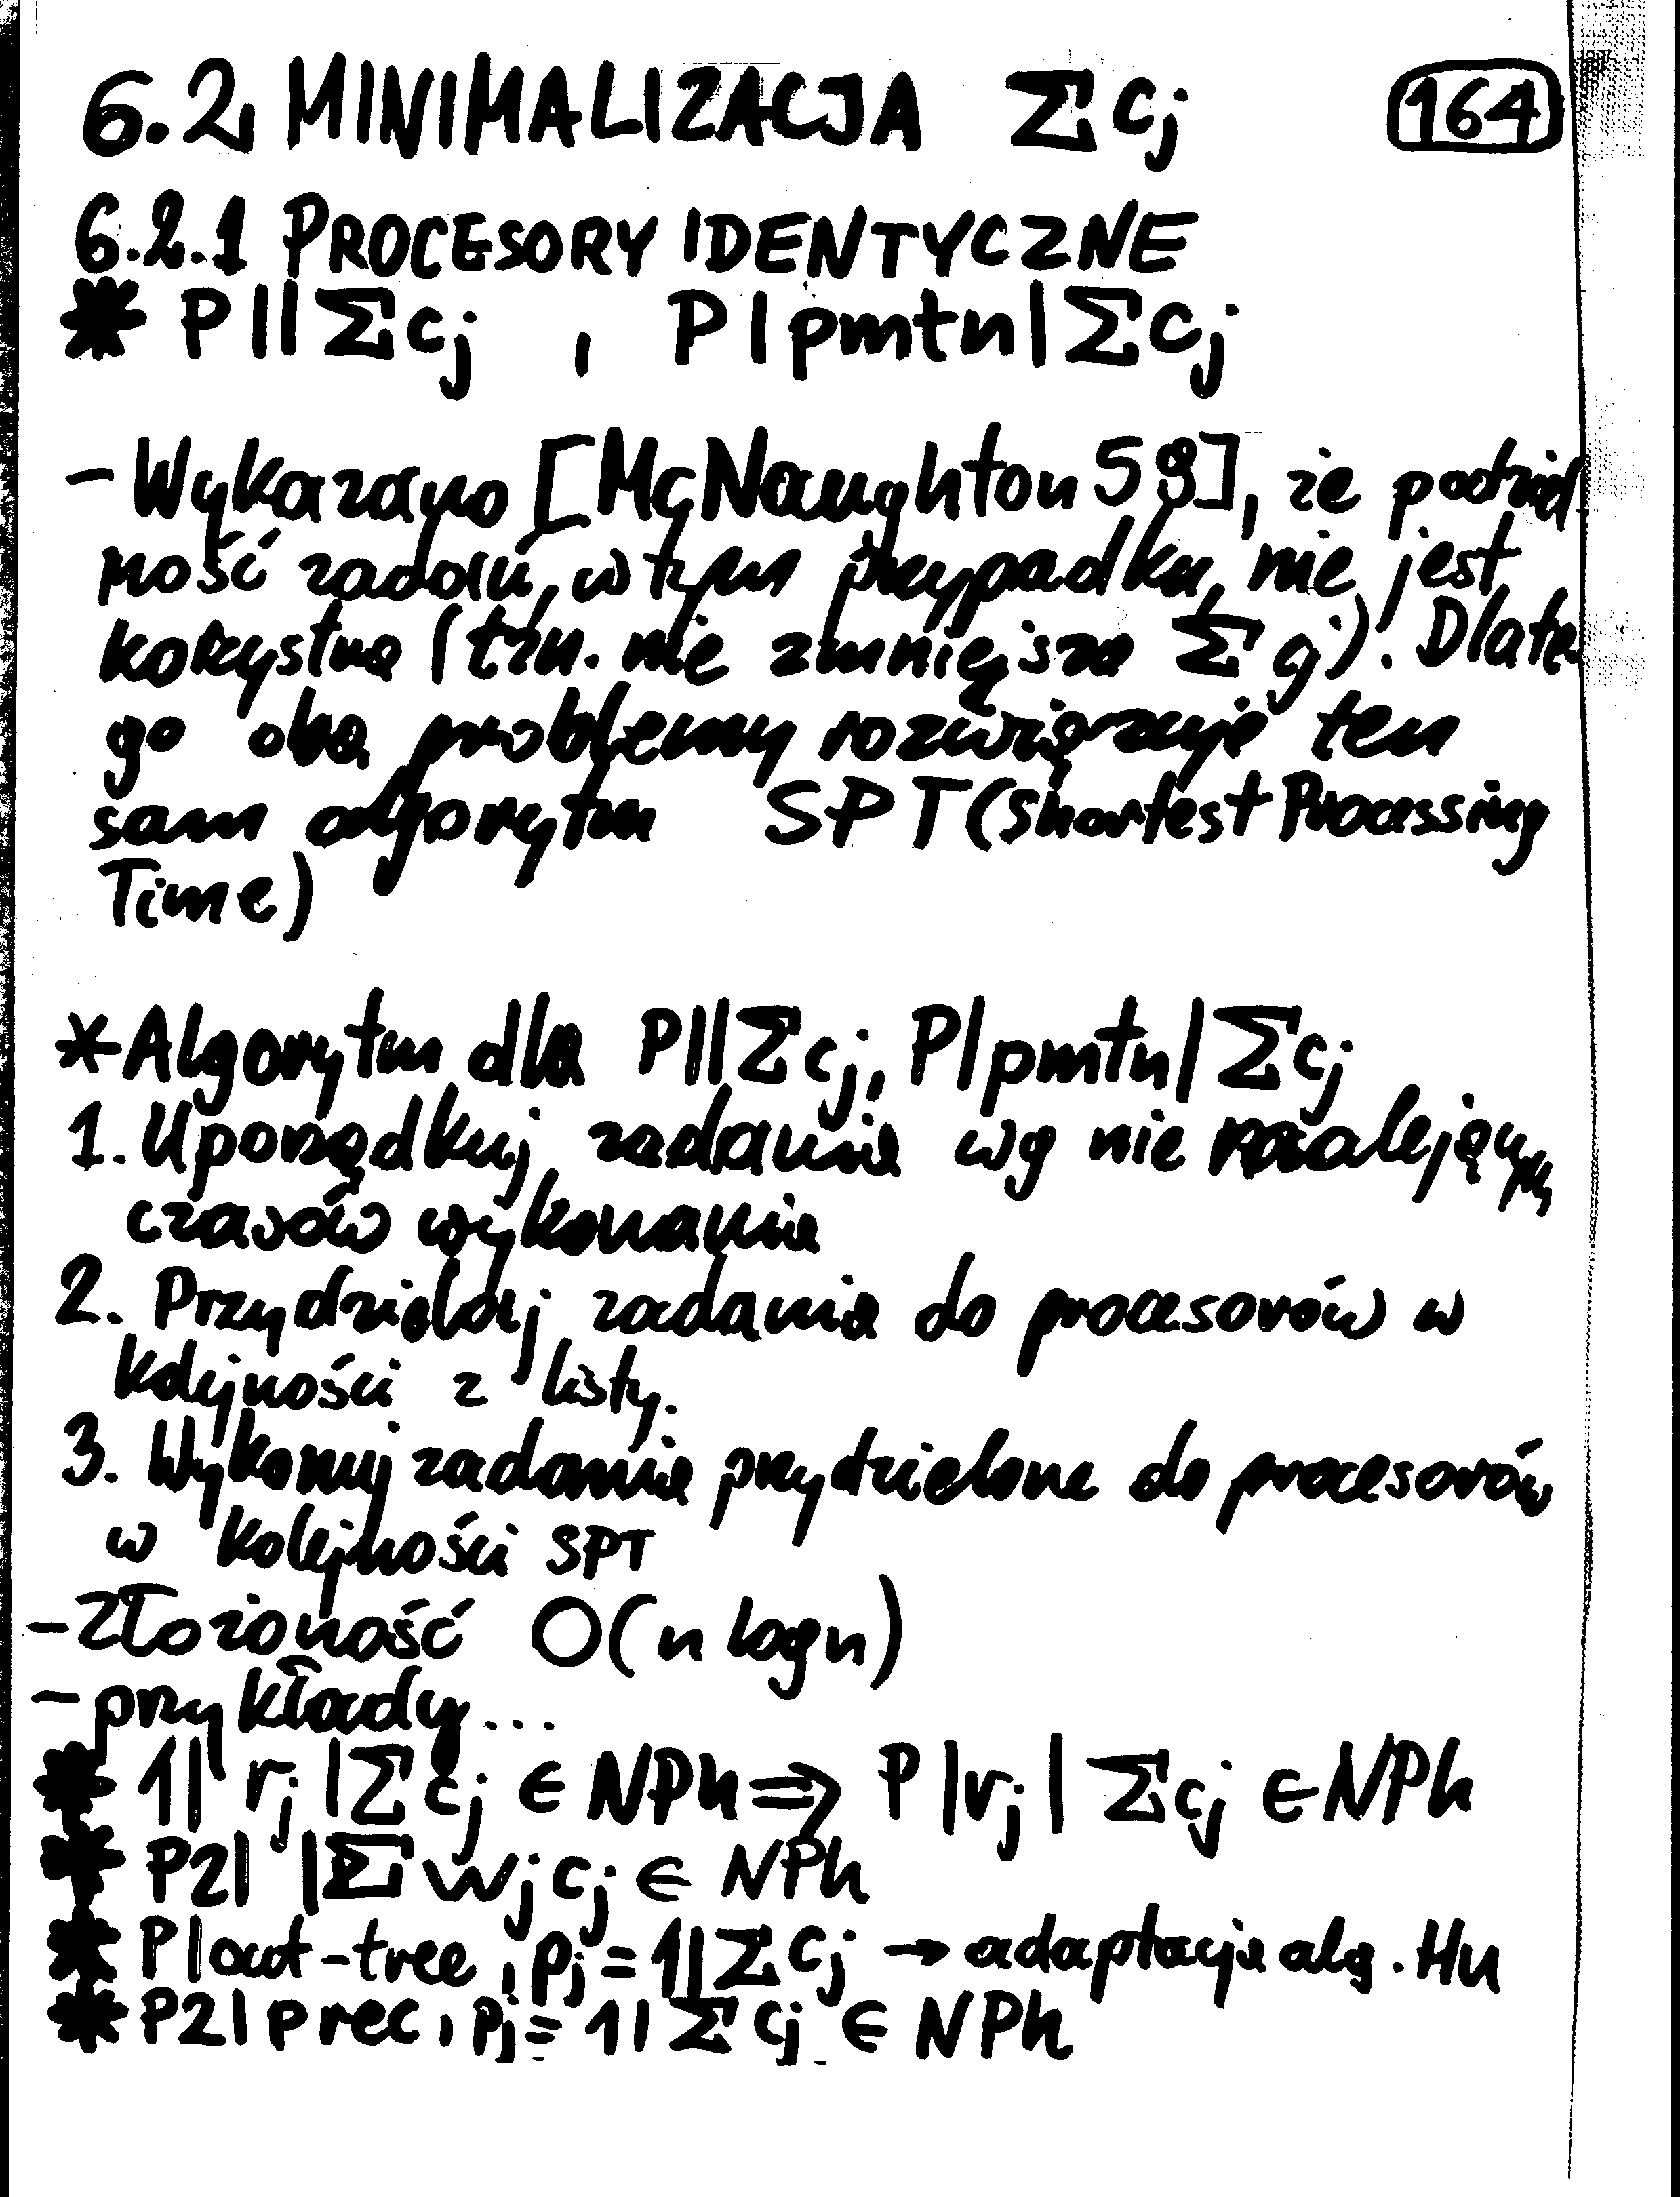 6.2 MINIMALIZACJA Σcj 164
6.2.1 PROCESORY IDENTYCZNE
* P||Σcj , P|pmtn|Σcj
- Wykazano [McNaughton 59], że podziel
ność zadań, w tym przypadku, nie jest
korzystna (tzn. nie zmniejsza Σcj)! Dlate
go oba problemy rozwiązuje ten
sam algorytm SPT (Shortest Processing
Time)
* Algorytm dla P||Σcj, P|pmtn|Σcj
1. Uporządkuj zadania wg nie malejących
czasów wykonania
2. Przydzielaj zadania do procesorów w
kolejności z listy.
3. Wykonuj zadania przydzielone do procesorów
w kolejności SPT
- Złożoność O(n log n)
- przykłady...
* 1|rj|Σcj ∈ NPh ⇒ P|rj|Σcj ∈ NPh
* P2| |Σwjcj ∈ NPh
* P|out-tree, pj=1|Σcj → adaptacja alg. Hu
* P2|prec, pj=1|Σcj ∈ NPh